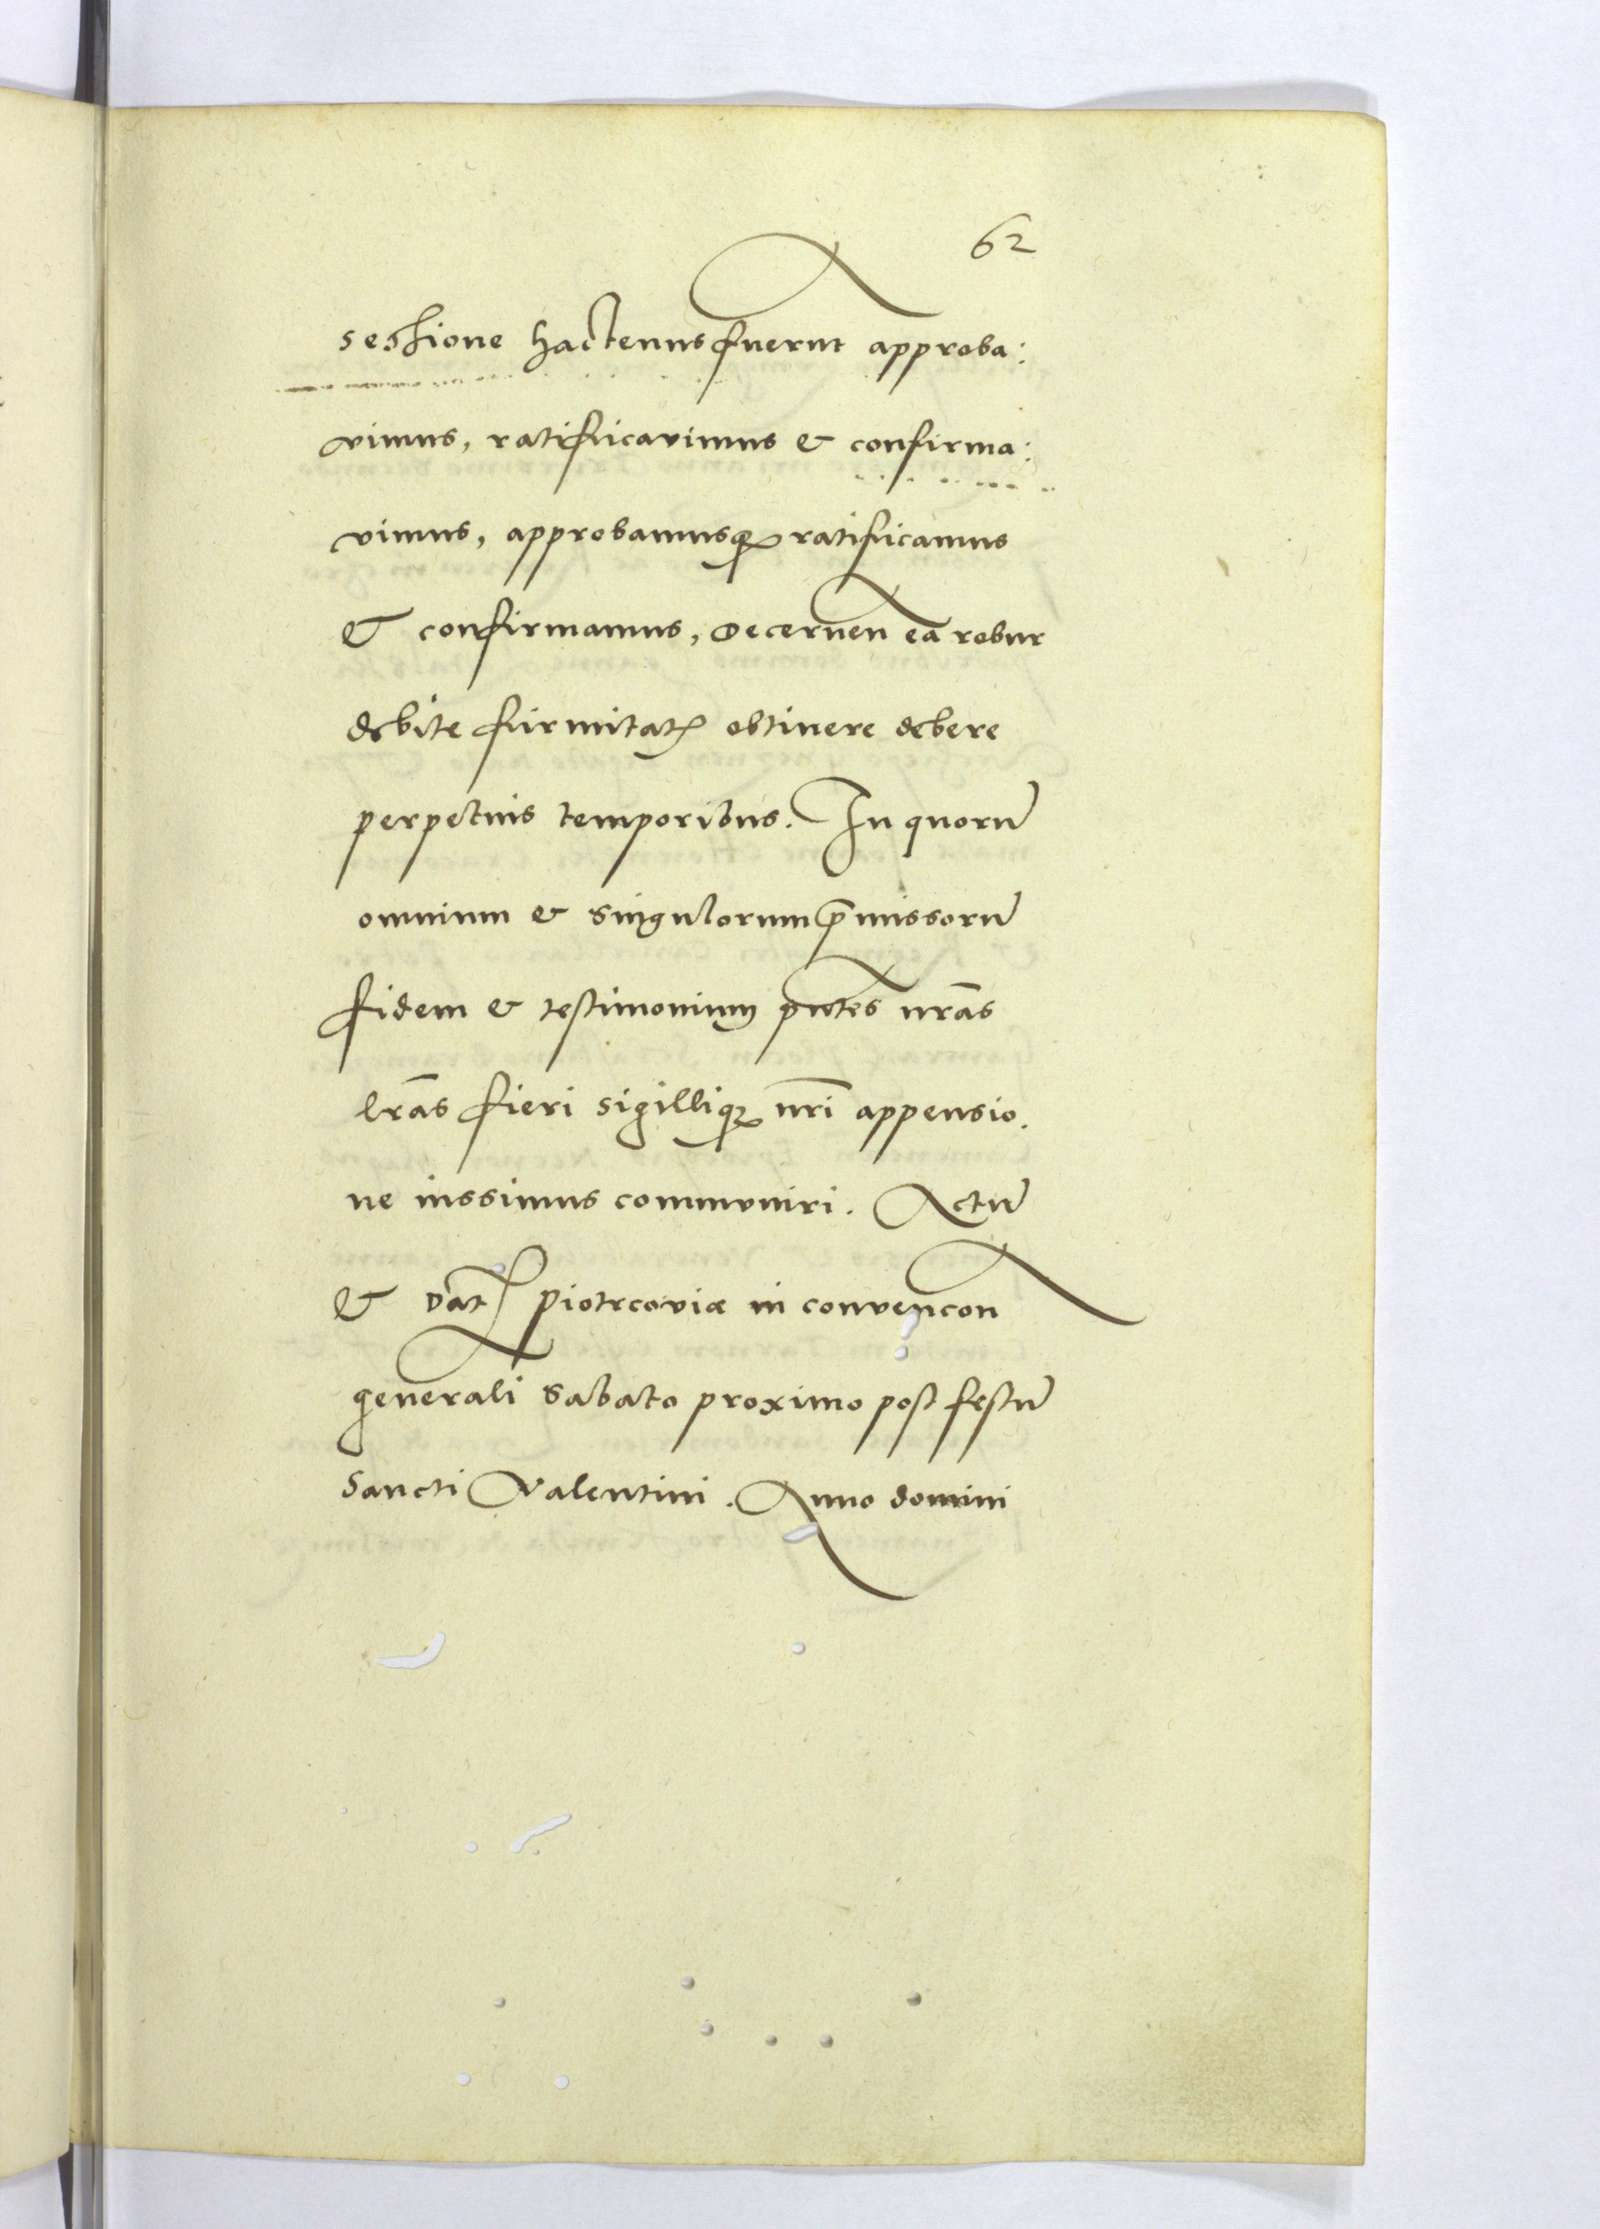 62
sessione hactenus fuerut approba:
vimus, ratificavimus & confirma:
vimus, approbamusq₃ ratificamus
& confirmamus, Decernen ea robur
debite firmitatꝭ obtinere debere
perpetuis temporibus. In quorū
omnium & singulorum p̄missorū
fidem & testimonium pn̄tes nr̄as
lr̄as fieri sigilliq₃ nr̄i appensio.
ne iussimus communiri. Actū
& Datꝭ Piotrcoviæ in convencon
generali Sabato proximo post festū
Sancti Valentini. Anno domini